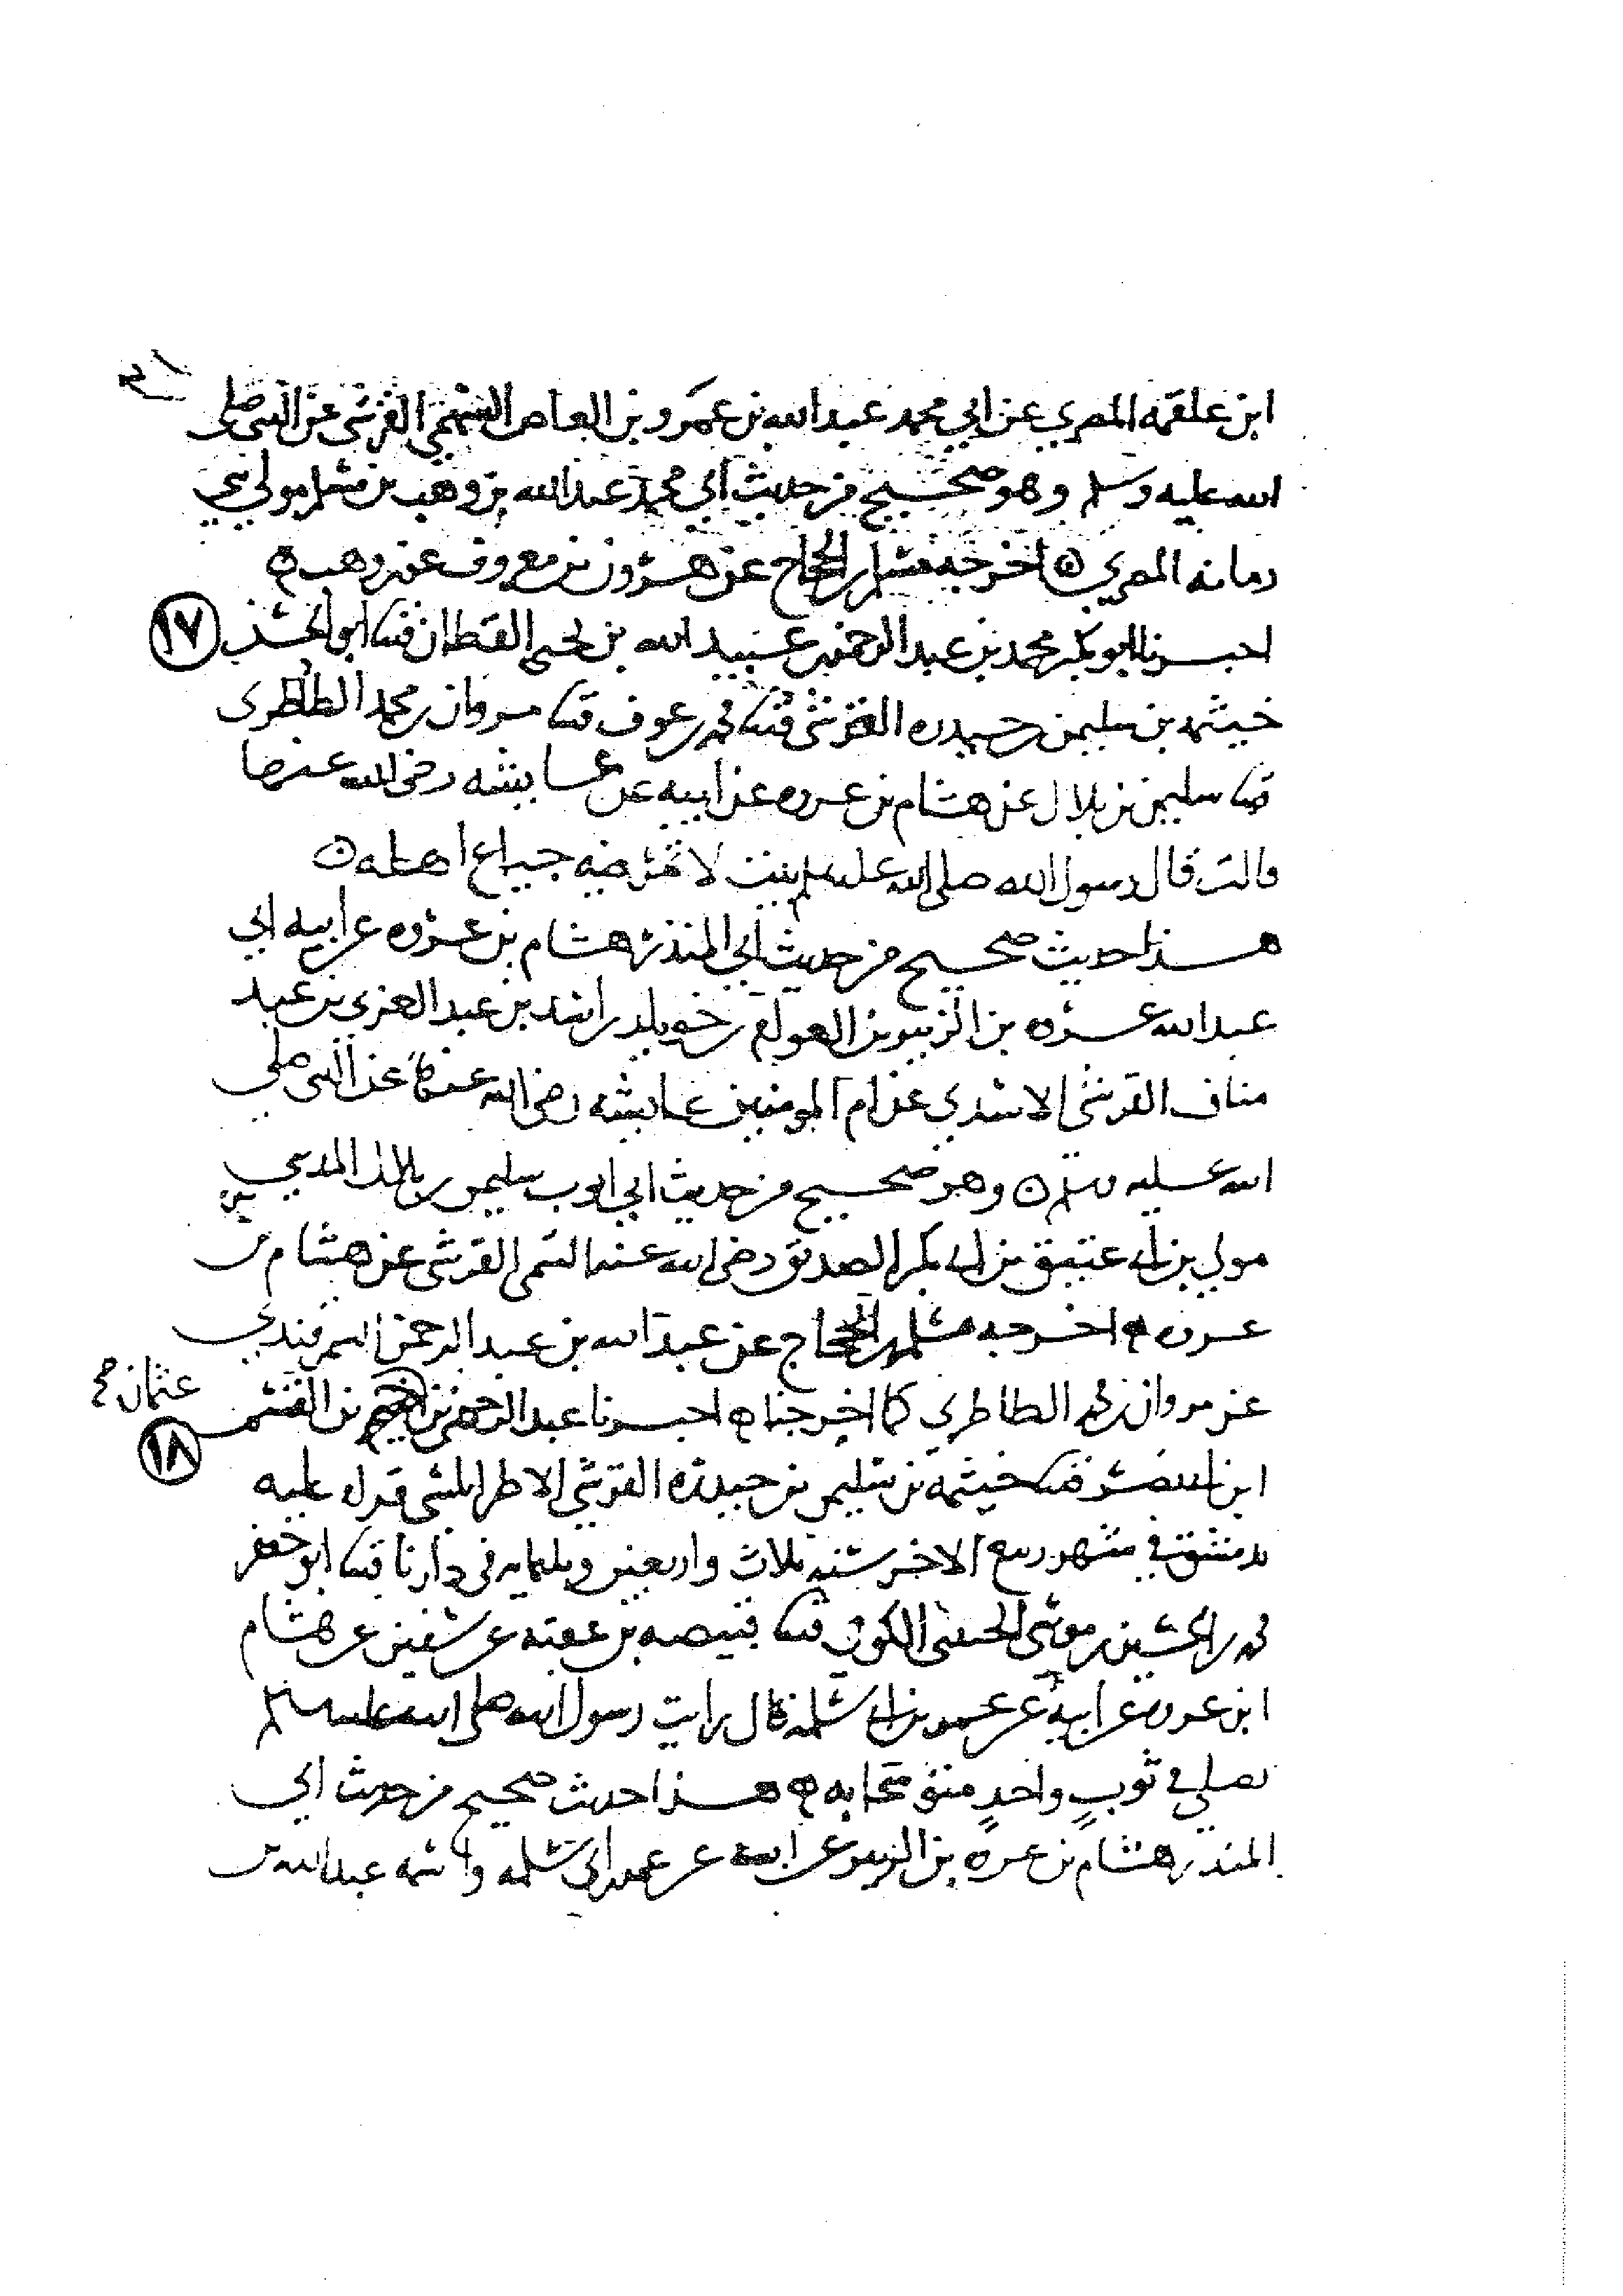 ابن علقمه المصري عن ابي محمد عبد الله بن عمرو بن العاص السهمي القرشي عن النبي صلى
الله عليه وسلم وهو صحيح من حديث ابي محمد عبد الله بن وهب بن مسلم مولى بني
رمانه المصري ه اخرجه مسلم بن الحجاج عن هرون بن معروف عن بن وهب ه
اخبرنا ابو بكر محمد بن عبد الرحمن بن عبيد الله بن يحيى القطان قثنا ابو الحسن
١٧
خيثمه بن سليمن بن حيدره القرشي قثنا محمد بن عوف قثنا مروان بن محمد الطاطري
قثنا سليمن بن بلال عن هشام بن عروه عن ابيه عن عايشه رضى الله عنها
قالت قال رسول الله صلى الله عليه وسلم بيت لا تمر فيه جياع اهله ه
هذا حديث صحيح من حديث ابي المنذر هشام بن عروه عن ابيه ابي
عبد الله عروه بن الزبير بن العوام بن خويلد بن اسد بن عبد العزى بن عبد
مناف القرشي الاسدي عن ام المومنين عايشه رضى الله عنها عن النبي صلى
الله عليه وسلم ه وهو صحيح من حديث ابي ايوب سليمن بن بلال المديني
مولى بن ابي عتيق بن ابي بكر الصديق رضى الله عنه التيمي القرشي عن هشام بن
عروه ه اخرجه مسلم بن الحجاج عن عبد الله بن عبد الرحمن السمرقندي
عن مروان بن محمد الطاطري كما اخرجناه ه اخبرنا عبد الرحمن بن القسم
عثمان
١٨
ابن ابي نصر قثنا خيثمه بن سليمن بن حيدره القرشي الاطرابلسي قراه عليه
بدمشق في شهر ربيع الاخر سنه ثلاث واربعين وثلثمايه في دارنا قثنا ابو جعفر
محمد بن الحسين بن موسى الحنيني الكوفي قثنا قبيصه بن عقبه عن سفين عن هشام
ابن عروه عن ابيه عن عمر بن ابي سلمه قال رايت رسول الله صلى الله عليه وسلم
يصلي في ثوب واحد متوشحا به ه هذا حديث صحيح من حديث ابي
المنذر هشام بن عروه بن الزبير عن ابيه عن عمر بن ابي سلمه واسمه عبد الله بن